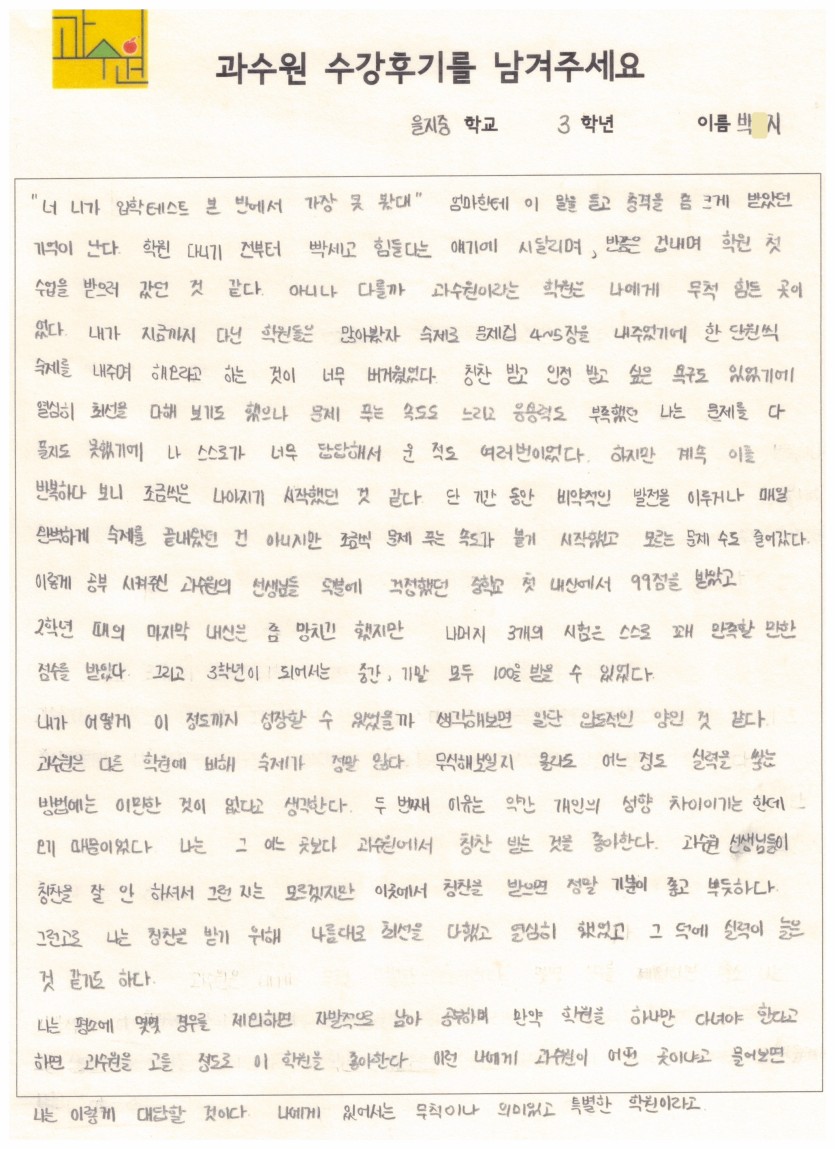 과수원
과수원 수강후기를 남겨주세요
을지중 학교 3 학년 이름 박 지
"너 니가 입학테스트 본 반에서 가장 못 봤대" 엄마한테 이 말을 듣고 충격을 좀 크게 받았던
기억이 난다. 학원 다니기 전부터 빡세고 힘들다는 얘기에 시달리며, 반쯤은 겁내며 학원 첫
수업을 받으러 갔던 것 같다. 아니나 다를까 과수원이라는 학원은 나에게 무척 힘든 곳이
었다. 내가 지금까지 다닌 학원들은 많아봤자 숙제로 문제집 4~5장을 내주었기에 한 단원씩
숙제를 내주며 해오라고 하는 것이 너무 버거웠었다. 칭찬 받고 인정 받고 싶은 욕구도 있었기에
열심히 최선을 다해 보기도 했으나 문제 푸는 속도도 느리고 응용력도 부족했던 나는 문제를 다
풀지도 못했기에 나 스스로가 너무 답답해서 운 적도 여러번이었다. 하지만 계속 이를
반복하다 보니 조금씩은 나아지기 시작했던 것 같다. 단 기간 동안 비약적인 발전을 이루거나 매일
완벽하게 숙제를 끝내왔던 건 아니지만 조금씩 문제 푸는 속도가 붙기 시작했고 모르는 문제 수도 줄어갔다.
이렇게 공부 시켜주신 과수원의 선생님들 덕분에 걱정했던 중학교 첫 내신에서 99점을 받았고
2학년 때의 마지막 내신은 좀 망치긴 했지만 나머지 3개의 시험은 스스로 꽤 만족할 만한
점수를 받았다. 그리고 3학년이 되어서는 중간, 기말 모두 100을 받을 수 있었다.
내가 어떻게 이 정도까지 성장할 수 있었을까 생각해보면 일단 압도적인 양인 것 같다.
과수원은 다른 학원에 비해 숙제가 정말 많다. 무식해보일지 몰라도 어느 정도 실력을 쌓는
방법에는 이만한 것이 없다고 생각한다. 두 번째 이유는 약간 개인의 성향 차이이기는 한데
오기 때문이었다 나는 그 어느 곳보다 과수원에서 칭찬 받는 것을 좋아한다. 과수원 선생님들이
칭찬을 잘 안 하셔서 그런 지는 모르겠지만 이곳에서 칭찬을 받으면 정말 기분이 좋고 뿌듯하다.
그런고로 나는 칭찬을 받기 위해 나름대로 최선을 다했고 열심히 했었고 그 덕에 실력이 늘은
것 같기도 하다.
나는 평소에 몇몇 경우를 제외하면 자발적으로 남아 공부하며 만약 학원을 하나만 다녀야 한다고
하면 과수원을 고를 정도로 이 학원을 좋아한다 이런 나에게 과수원이 어떤 곳이냐고 물어보면
나는 이렇게 대답할 것이다. 나에게 있어서는 무척이나 의미있고 특별한 학원이라고.